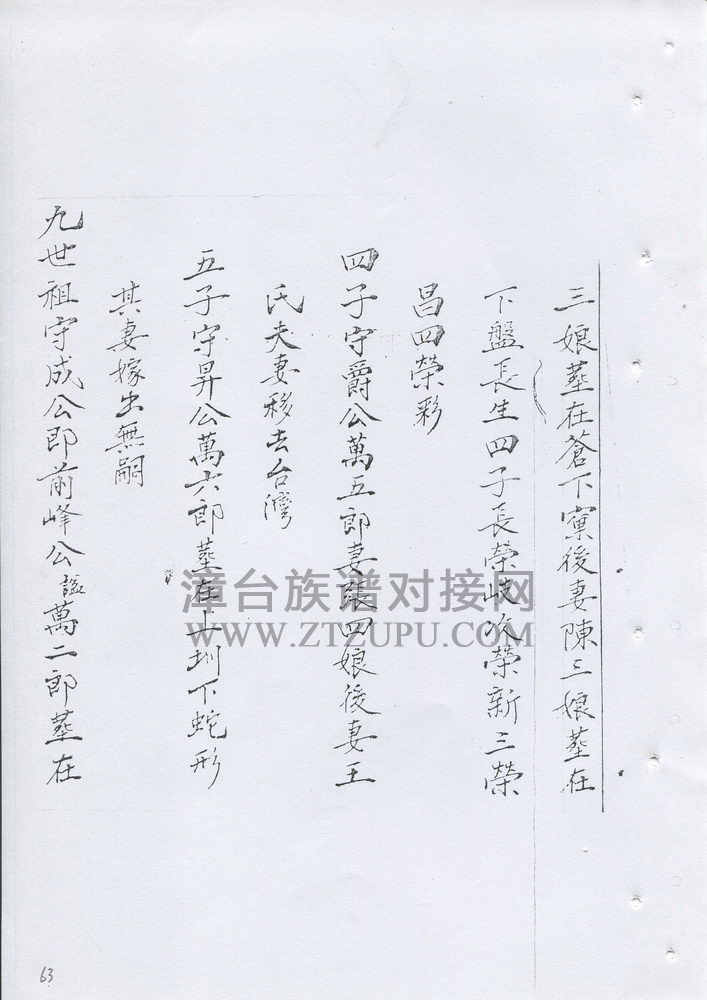 三娘墓在蒼下寮後妻陳三娘墓在
下盤長生四子長榮岐次榮新三榮
昌四榮彩
四子守爵公萬五郎妻張四娘後妻王
氏夫妻移去台灣
五子守昇公萬六郎墓在上圳下蛇形
其妻嫁出無嗣
九世祖守成公即前峰公謚萬二郎墓在
漳台族谱对接网
WWW.ZTZUPU.COM
63